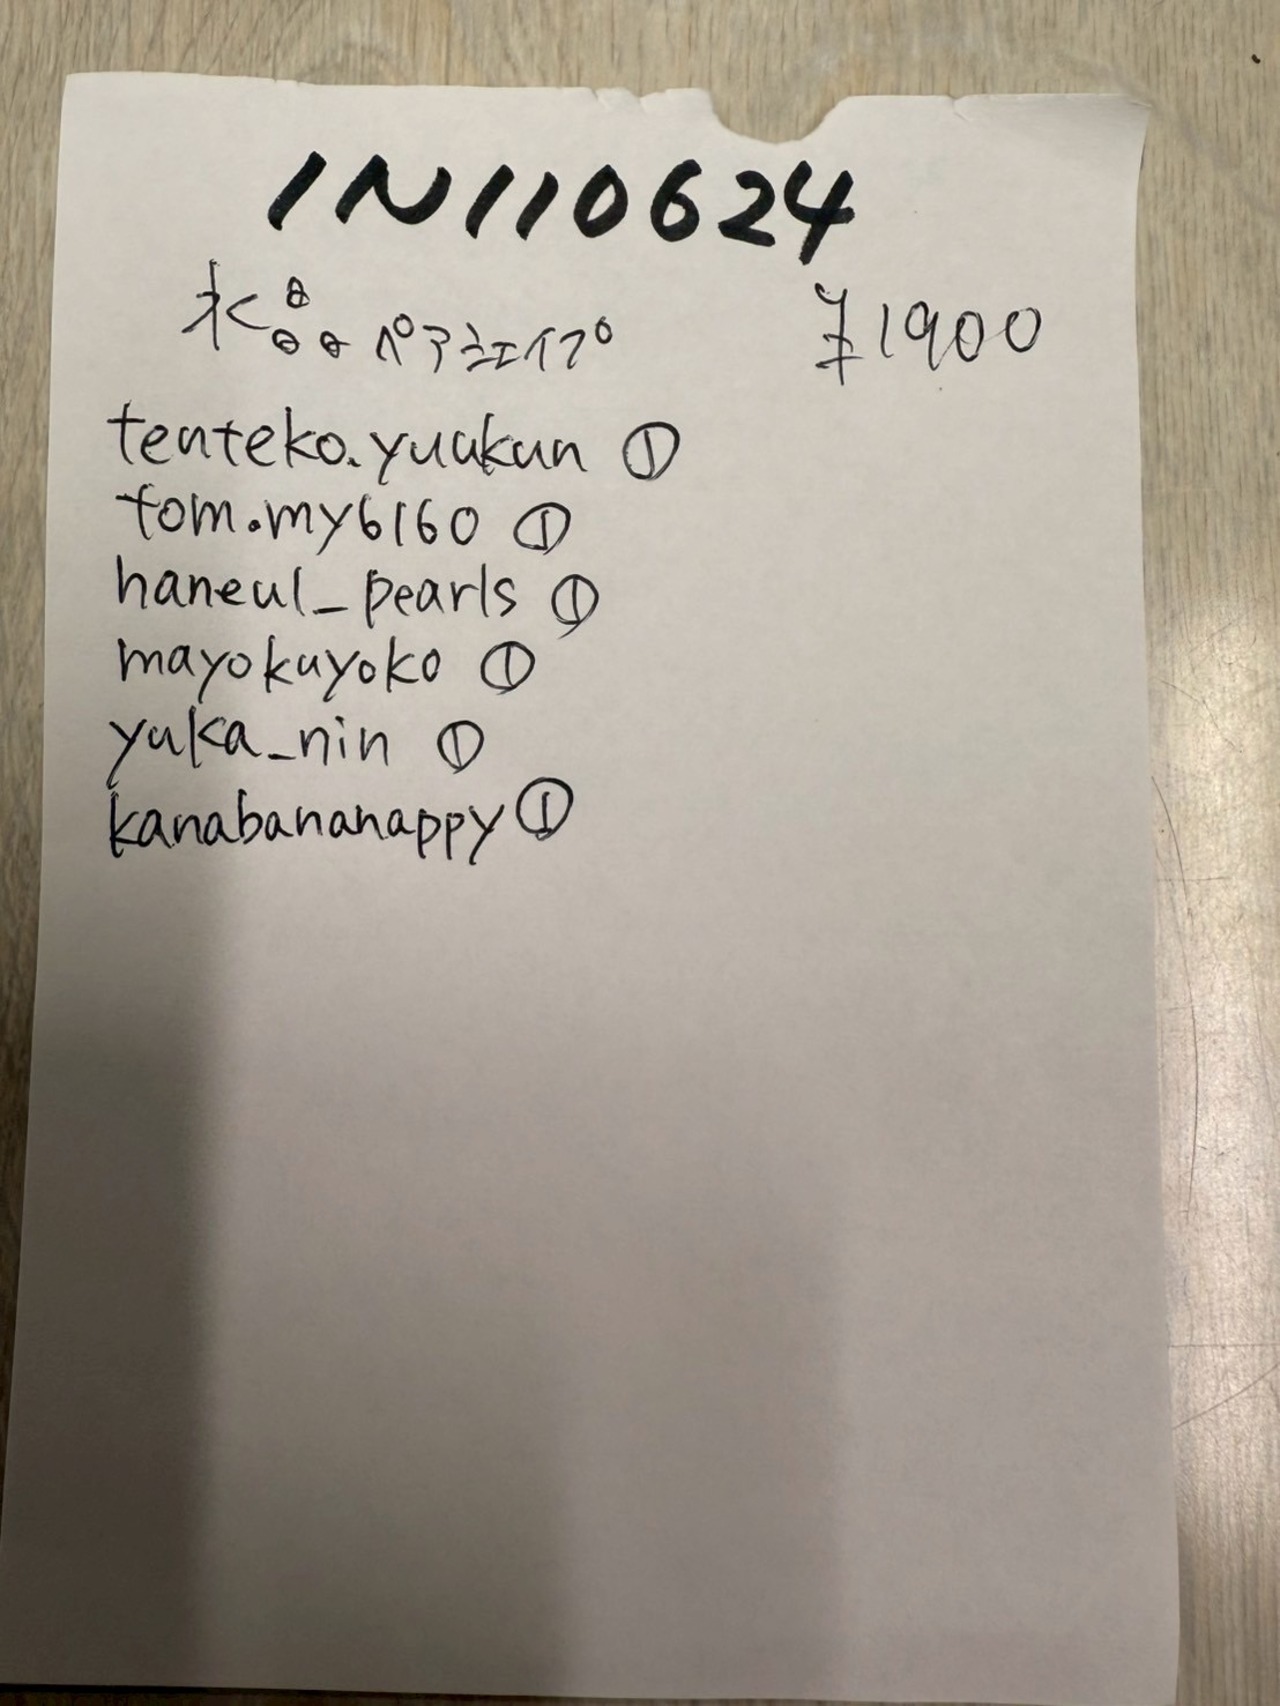 1N110624
水晶 ペアシェイプ ¥1900
tenteko.yuukun ①
tom.my6160 ①
haneul_pearls ①
mayokayoko ①
yuka_nin ①
kanabananappy ①